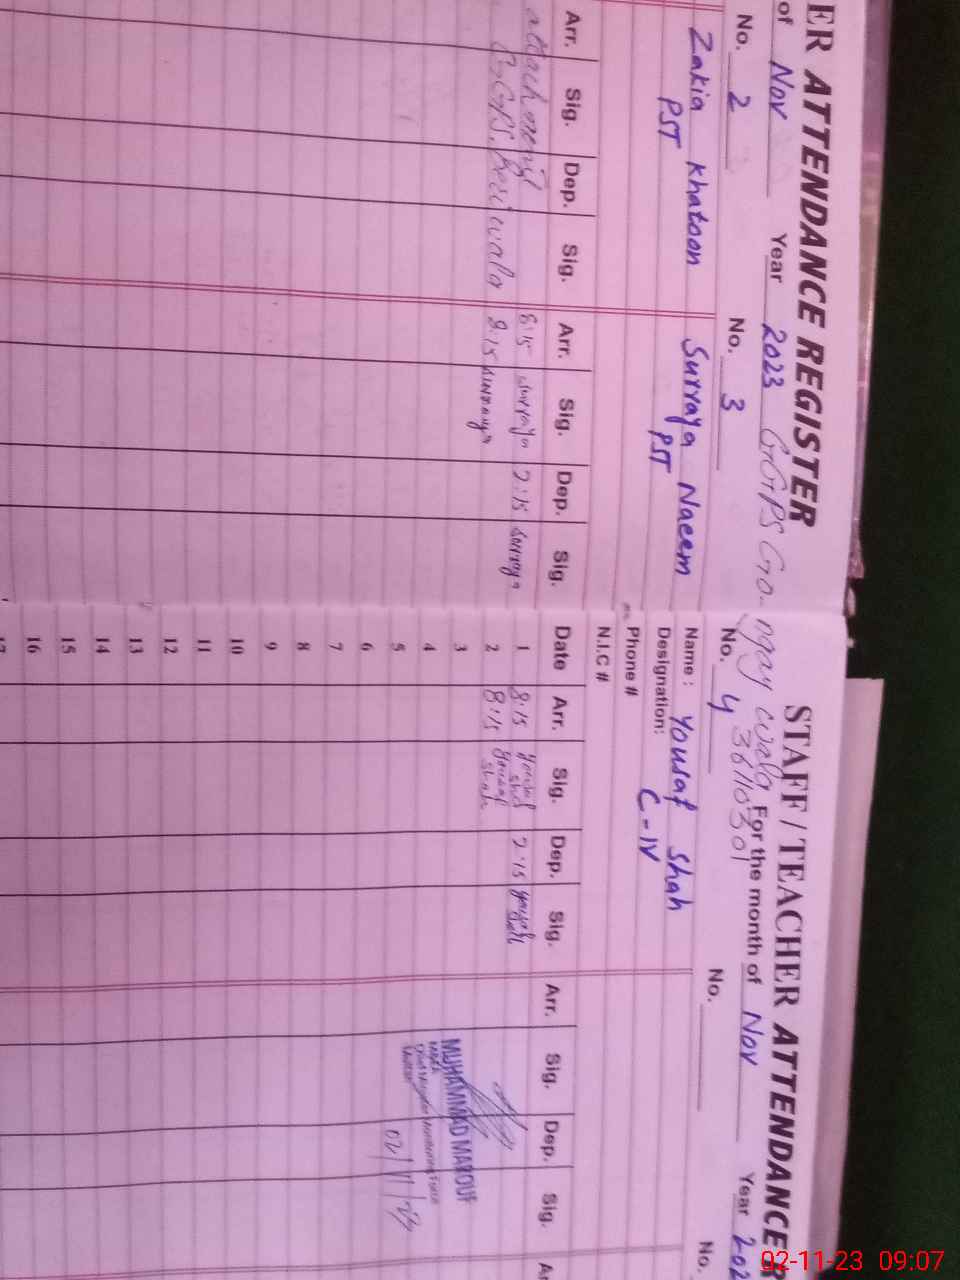 ER ATTENDANCE REGISTER
of Nov Year 2023 GGPS
No. 2 No. 3
Zakia Khatoon Surraya Naeem
PST PST
Arr. Sig. Dep. Sig. Arr. Sig. Dep. Sig.
attachment 8:15 surraya 2:15 surraya
GGPS, wala 8:15 surraya
STAFF / TEACHER ATTENDANCE
wala For the month of Nov Year 202
36110301
No. 4 No. No.
Name: Yousaf Shah
Designation: C-IV
Phone #
N.I.C #
Date Arr. Sig. Dep. Sig. Arr. Sig. Dep. Sig.
1 8:15 Yousaf Shah 2:15 Yousaf Shah
2 8:15 Yousaf Shah
3
4
5
6
7
8
9
10
11
12
13
14
15
16
17
MUHAMMAD MAROUF
02-11-23 09:07